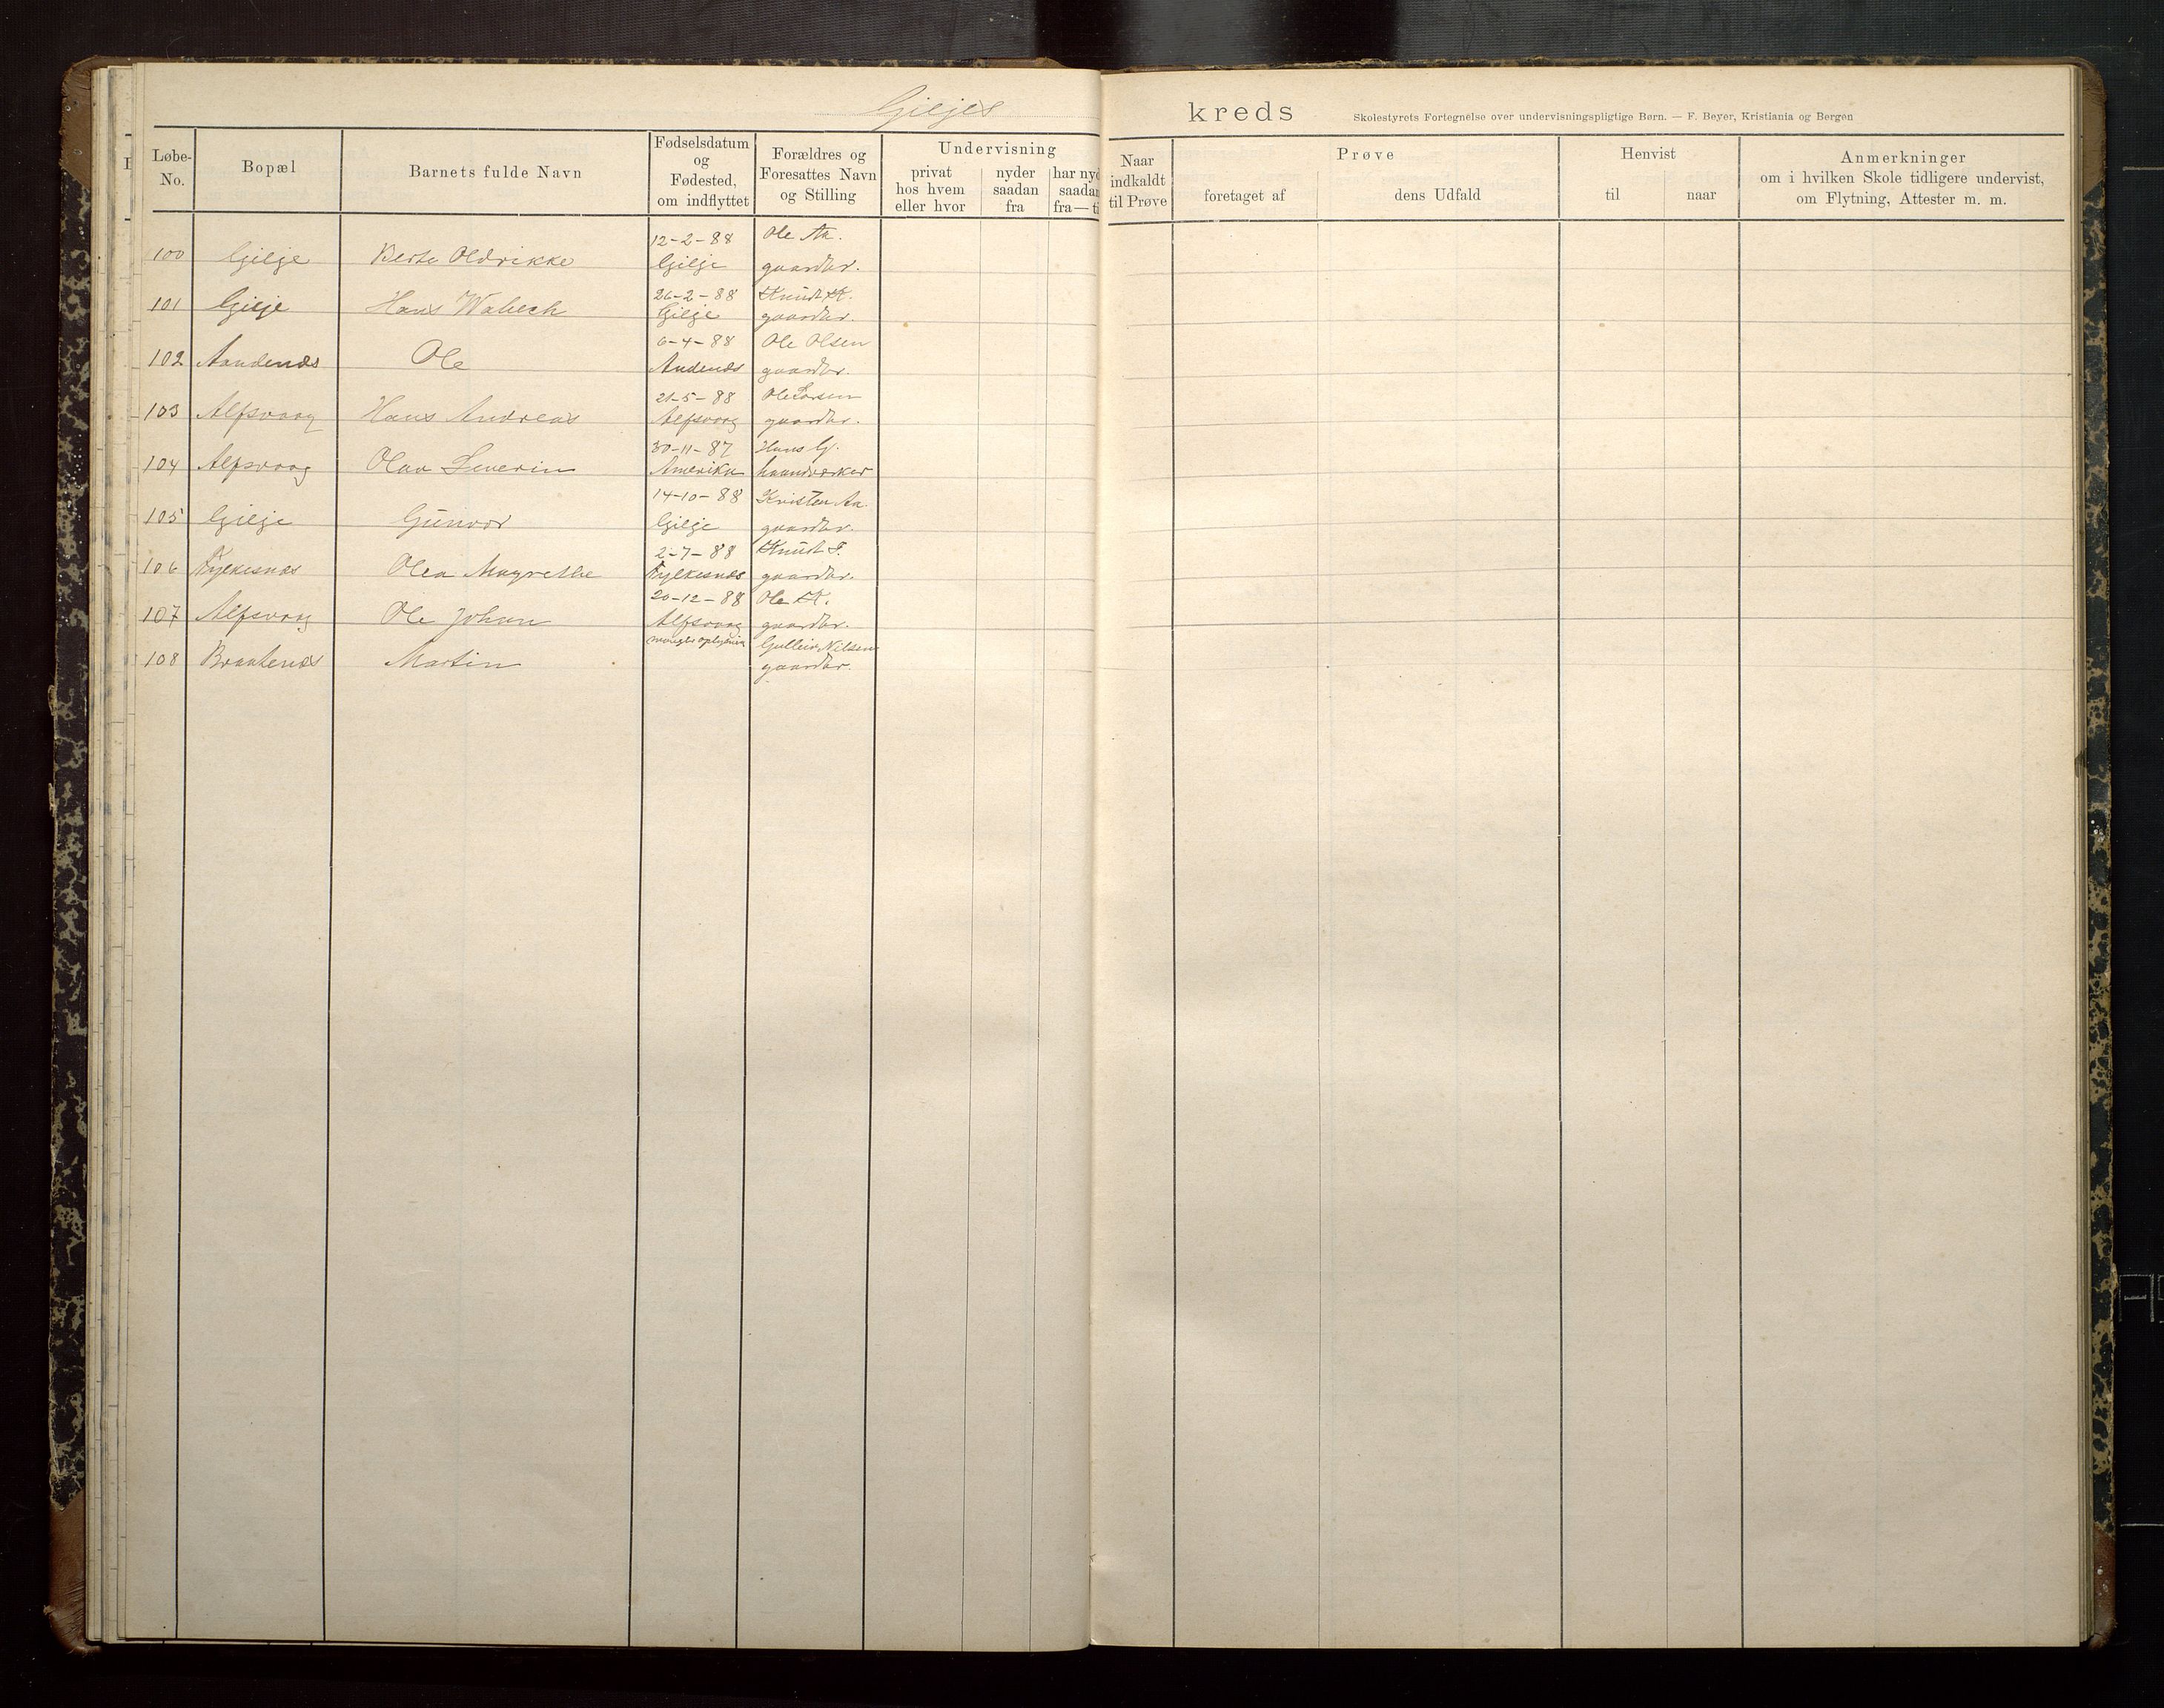 Gjeljes kreds Skolestyrets Fortegnelse over undervisningspligtige Børn. — F. Beyer, Kristiania og Bergen
Løbe-No. Bopæl Barnets fulde Navn Fødselsdatum og Fødested, om indflyttet Forældres og Foresattes Navn og Stilling Undervisning privat hos hvem eller hvor nyder saadan fra har nyd saadan fra—ti Naar indkaldt til Prøve Prøve foretaget af dens Udfald Henvist til naar Anmerkninger om i hvilken Skole tidligere undervist, om Flytning, Attester m. m.
12-2-88 Ole Aa.
100 Gjelje Berte Oldrikke Gjelje gaardbr.
26-2-88 Knudt K.
101 Gjelje Hans Gjelje gaardbr.
6-4-88 Ole Olsen
102 Aandenæs Ole Andenæs gaardbr.
21-5-88 Ole Larsen
103 Alfsvaag Hans Andreas Alfsvaag gaardbr.
30-11-87 Hans G.
104 Alfsvaag Olav Severin Amerika haandværker
14-10-88 Kristen Aa.
105 Gjelje Gunvor Gjelje gaardbr.
2-7-88 Knudt F.
106 Fylkesnæs Olea Magrethe Fylkesnæs gaardbr.
20-12-88 Ole K.
107 Alfsvaag Ole Johan Alfsvaag gaardbr.
Nilsen
108 Braatenæs Martin gaardbr.